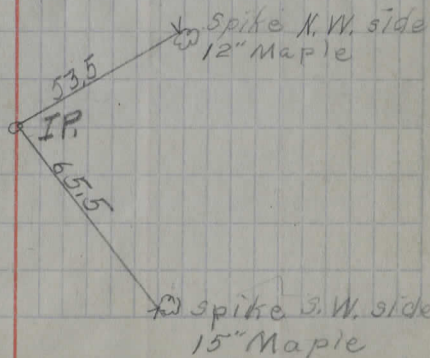 Spike N.W. side
12" Maple
53.5
I.P.
65.5
Spike S.W. side
15" Maple